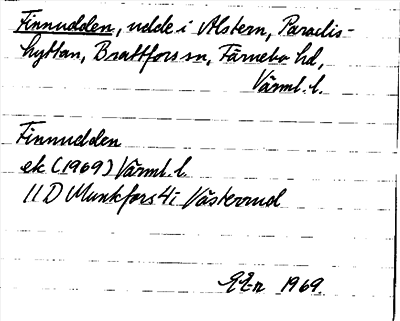 Finnudden, udde i Alstern, Paradis-
hyttan, Brattfors sn, Färnebo hd,
Värml. l.
Finnudden
ek (1969) Värml. l.
11D Munkfors 4i Västerrud
1969